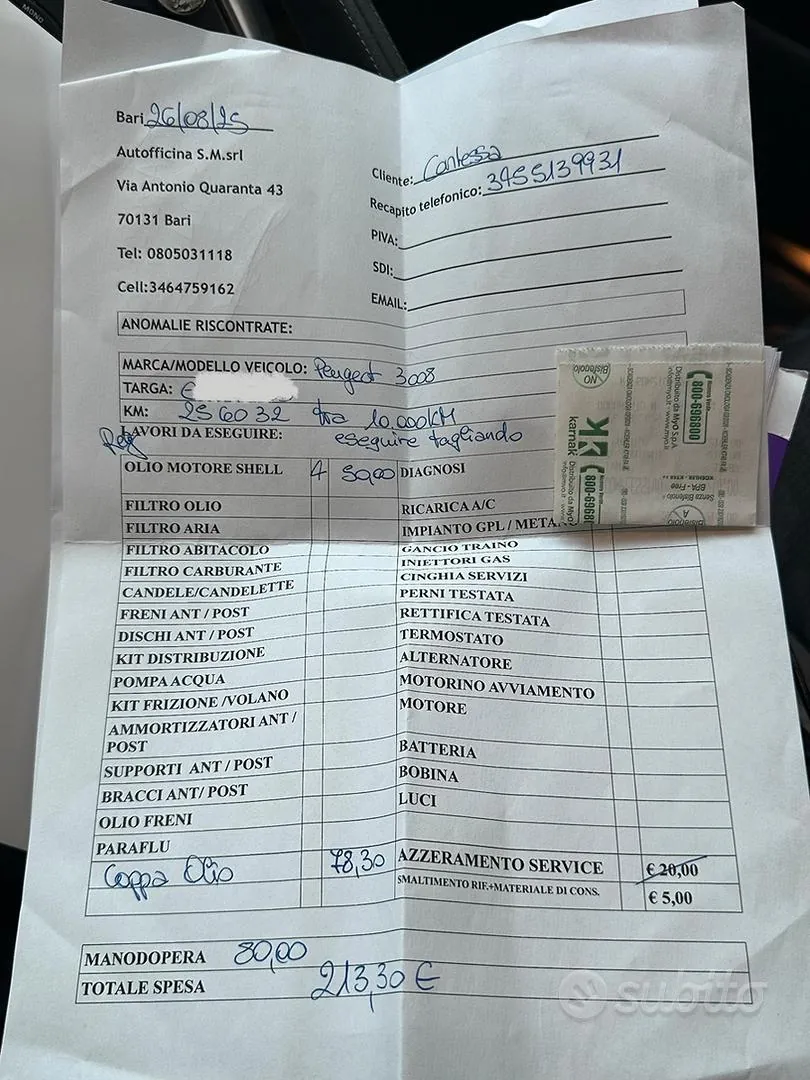 MONO
Bari 26/08/25
Autofficina S.M.srl
Via Antonio Quaranta 43
70131 Bari
Tel: 0805031118
Cell:3464759162
Cliente: Contessa
Recapito telefonico: 3455139931
PIVA:
SDI:
EMAIL:
ANOMALIE RISCONTRATE:
MARCA/MODELLO VEICOLO: Peugeot 3008
TARGA:
KM: 256032 tra 10.000KM
LAVORI DA ESEGUIRE: eseguire tagliando
OLIO MOTORE SHELL 4 50,00 DIAGNOSI
FILTRO OLIO RICARICA A/C
FILTRO ARIA IMPIANTO GPL / META
FILTRO ABITACOLO GANCIO TRAINO
FILTRO CARBURANTE INIETTORI GAS
CANDELE/CANDELETTE CINGHIA SERVIZI
FRENI ANT / POST PERNI TESTATA
DISCHI ANT / POST RETTIFICA TESTATA
KIT DISTRIBUZIONE TERMOSTATO
POMPA ACQUA ALTERNATORE
KIT FRIZIONE /VOLANO MOTORINO AVVIAMENTO
AMMORTIZZATORI ANT / MOTORE
POST
SUPPORTI ANT / POST BATTERIA
BRACCI ANT/ POST BOBINA
OLIO FRENI LUCI
PARAFLU
Coppa Olio 78,30 AZZERAMENTO SERVICE € 20,00
SMALTIMENTO RIF.+MATERIALE DI CONS. € 5,00
MANODOPERA 80,00
TOTALE SPESA 213,30 €
NO
Bisfenolo
Distribuito da MyO S.p.A.
800-696800
karnak
BPA - Free
Senza Bisfenolo A
subito